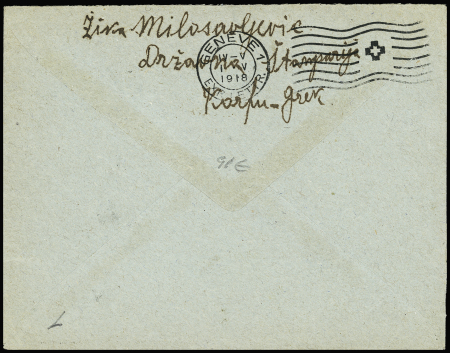 Žika Milosavljević
Državna Štamparija
Korfu - Grek
GENEVE 1
V
1918
EXP. LETTR.